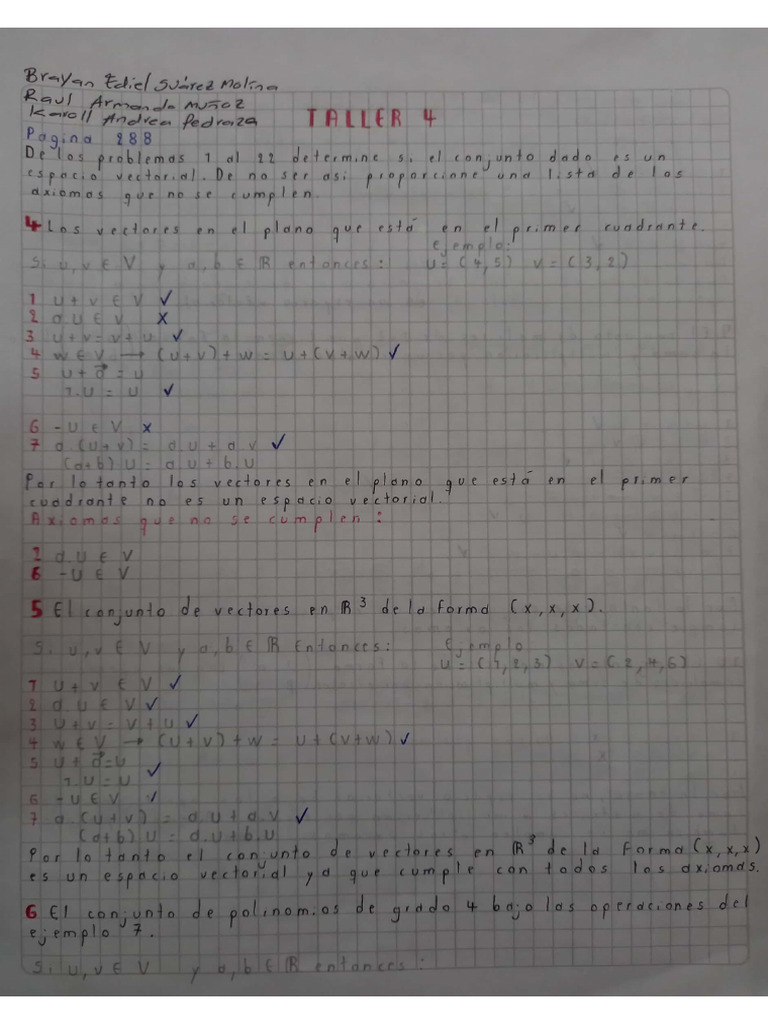 Brayan Ediel Suárez Molina
Raul Armando Muñoz
Karoll Andrea Pedraza
TALLER 4
Pagina 288
De los problemas 1 al 22 determine si el conjunto dado es un
espacio vectorial. De no ser asi proporcione una lista de los
axiomas que no se cumplen.
4 Los vectores en el plano que está en el primer cuadrante.
ejemplo:
Si u,v ∈ V y a,b ∈ ℝ entonces: u=(4,5) v=(3,2)
1 u+v ∈ V ✓
2 a.u ∈ V x
3 u+v=v+u ✓
4 w ∈ V → (u+v)+w = u+(v+w) ✓
5 u+0⃗=u
1.u=u ✓
6 -u ∈ V x
7 a.(u+v)= a.u+a.v ✓
(a+b)u=a.u+b.u
Por lo tanto los vectores en el plano que está en el primer
cuadrante no es un espacio vectorial.
Axiomas que no se cumplen:
2 a.u ∈ V
6 -u ∈ V
5 El conjunto de vectores en ℝ³ de la forma (x,x,x).
Si u,v ∈ V y a,b ∈ ℝ Entonces: Ejemplo
u=(1,2,3) v=(2,4,6)
1 u+v ∈ V ✓
2 a.u ∈ V ✓
3 u+v=v+u ✓
4 w ∈ V → (u+v)+w = u+(v+w) ✓
5 u+0⃗=u
1.u=u ✓
6 -u ∈ V ✓
7 a.(u+v) = a.u+a.v ✓
(a+b)u = a.u+b.u
Por lo tanto el conjunto de vectores en ℝ³ de la forma (x,x,x)
es un espacio vectorial ya que cumple con todos los axiomas.
6 El conjunto de polinomios de grado 4 bajo las operaciones del
ejemplo 7.
Si u,v ∈ V y a,b ∈ ℝ entonces: